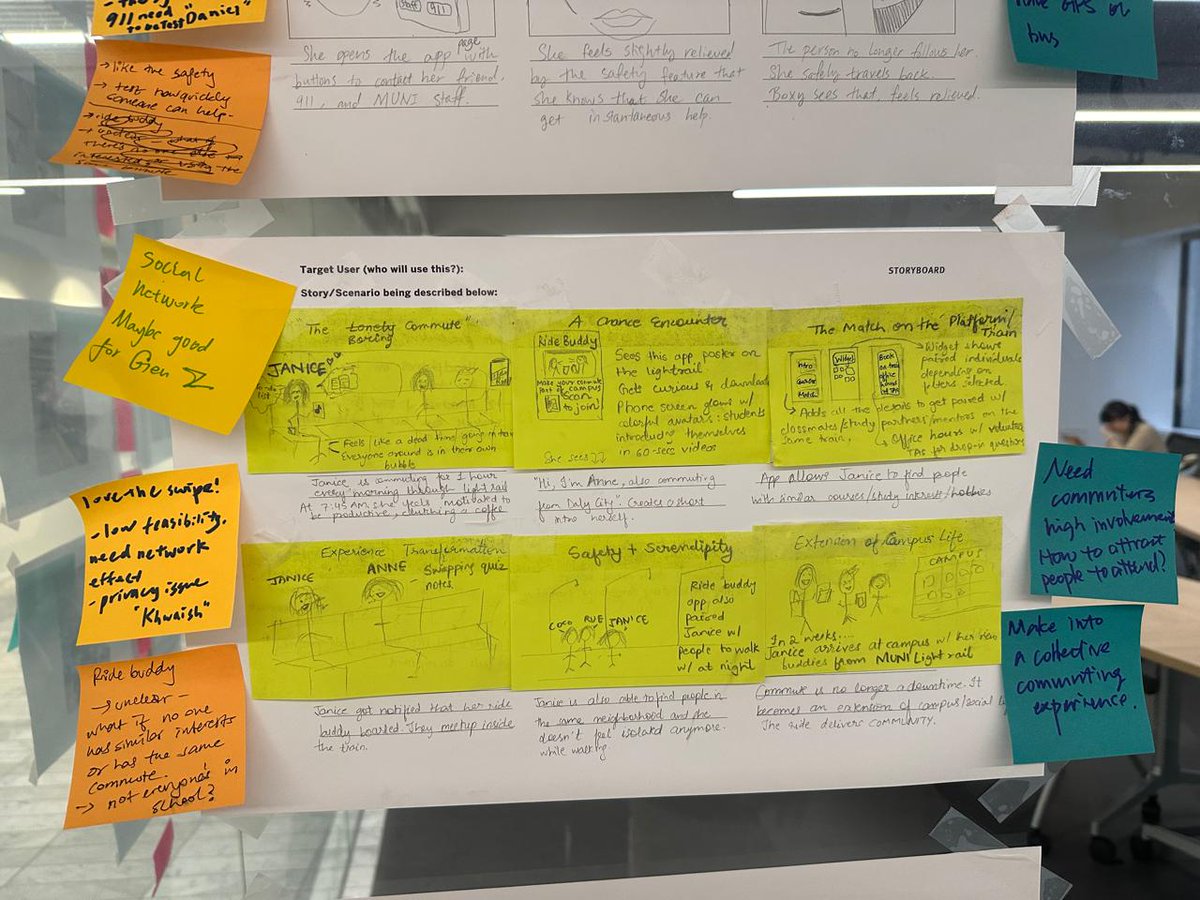 911 need
to be Test Daniel"
→ like the safety
→ test how quickly
someone can help.
→ ride buddy
She opens the app page with
buttons to contact her friend,
911, and MUNI staff.
She feels slightly relieved
by the safety feature that
she knows that she can
get instantaneous help.
The person no longer follows her.
She safely travels back.
Boxy sees that, feels relieved.
bus
Target User (who will use this?):
STORYBOARD
Story/Scenario being described below:
Social
network
Maybe good
for Gen Z
"The Lonely Commute"
Boring
JANICE
Feels like a dead time going in
Everyone around is in their own
bubble
A Chance Encounter
Ride Buddy
Make your commute
part of campus
Scan
to join!
She sees
Sees this app poster on
the lightrail
Gets curious & downloads
Phone screen glows w/
colorful avatars: students
introducing themselves
in 60-secs videos
The Match on the Platform/
Train
Intro
Match
Widget
→ Widget shows
paired individuals
depending on
filters selected
→ Adds all the details to get paired w/
classmates/study partners/mentors on the
same train.
→ Office hours w/ volunteer
TAs for drop-in questions
Janice is commuting for 1 hour
every morning through light rail
At 7:45 AM she feels unmotivated to
be productive, clutching a coffee
"Hi, I'm Anne, also commuting
from Daly City". Creates a short
intro herself.
App allows Janice to find people
with similar courses/study interests/hobbies
love the swipe!
- low feasibility.
need network
effect
- privacy issue
"Khwaish"
Need
commuters
high involvement
How to attract
people to attend?
Experience Transformation
JANICE
ANNE
- Swapping quiz
notes.
Safety + Serendipity
COCO RUE JANICE
Ride buddy
app also
paired
Janice w/
people to walk
w/ at night
Extension of Campus Life
CAMPUS
In 2 weeks...
Janice arrives at campus w/ her new
buddies from MUNI Light rail
Janice got notified that her ride
buddy boarded. They meetup inside
the train.
Janice is also able to find people in
the same neighborhood and she
doesn't feel isolated anymore.
while walking
Commute is no longer a downtime. It
becomes an extension of campus/social
The ride delivers COMMUNITY.
Ride buddy
→ unclear -
what if no one
has similar interests
or has the same
commute.
→ not everyone's in
school?
Make into
a collective
commuting
experience.